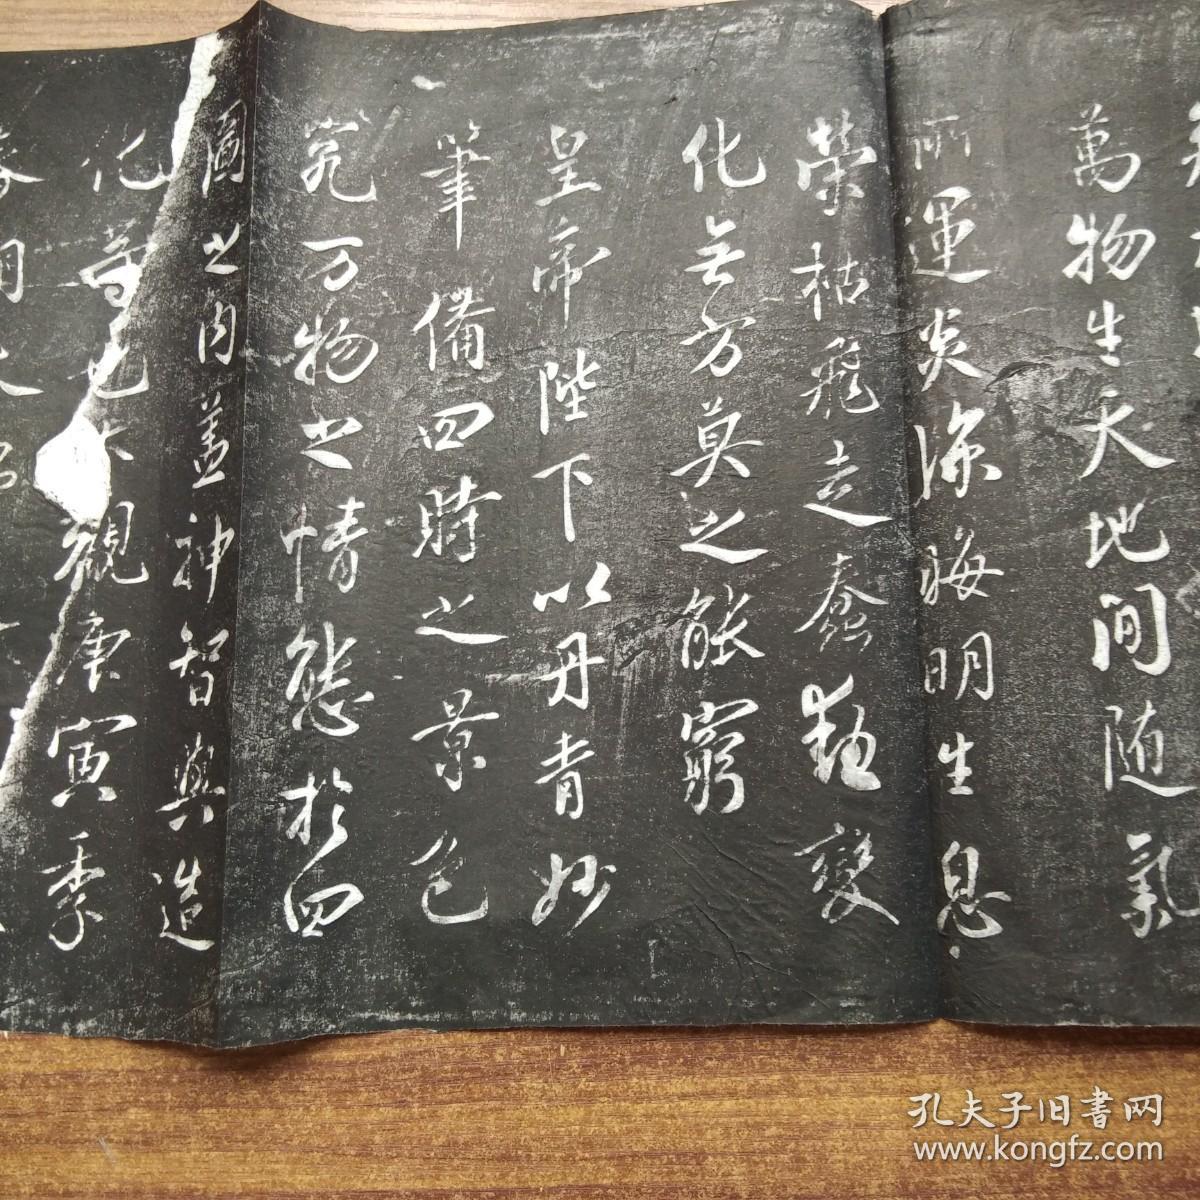 萬物生天地間随氣
所運炎涼晦明生息
榮枯飛走蠢動變
化無方莫之能窮
皇帝陛下以丹青妙
筆備四時之景色
究万物之情態於四
圖之内盖神智與造
化等也大觀庚寅季
春朔太
孔夫子旧书网
www.kongfz.com